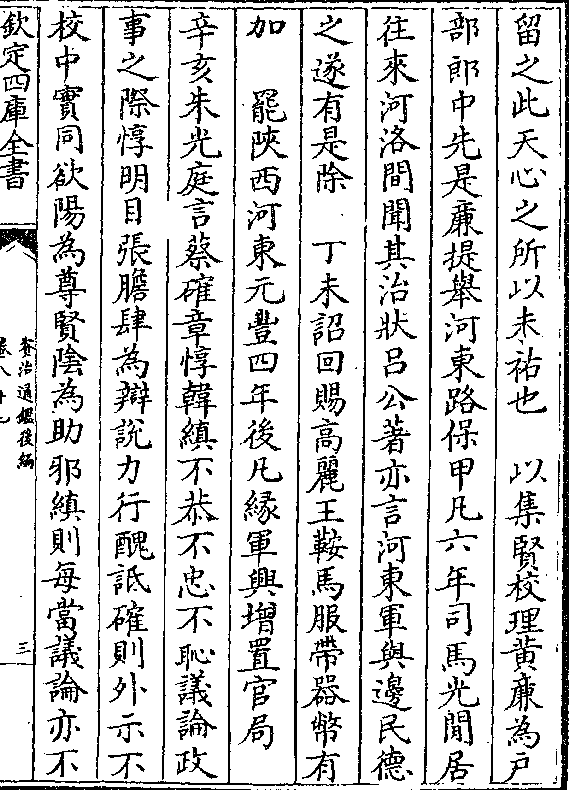 留之此天心之所以未祐也　以集賢校理黄廉為戸
部郎中先是亷提舉河東路保甲凡六年司馬光閒居
往來河洛間聞其治狀吕公著亦言河東軍與邊民德
之遂有是除　丁未詔回賜高麗王鞍馬服帶器幣有
加　罷陜西河東元豐四年後凡縁軍興增置官局
辛亥朱光庭言蔡確章惇韓縝不恭不忠不恥議論政
事之際惇明目張膽肆為辯說力行醜詆確則外示不
校中實同欲陽為尊賢陰為助邪縝則每當議論亦不
欽定四庫全書
資治通鑑後編
卷八十九
三